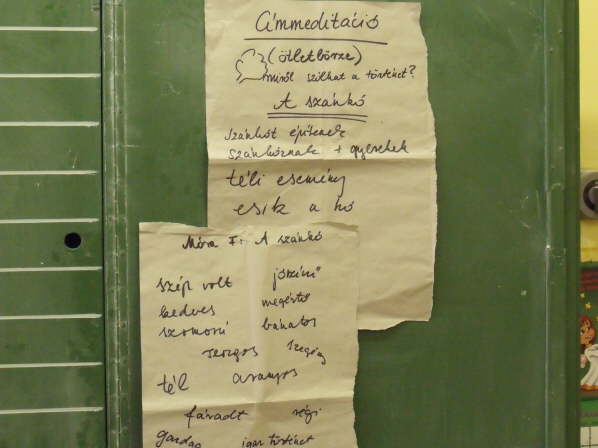 Címmeditáció
(ötletbörze)
miről szólhat a történet?
A szánkó
szánkót építenek
szánkóznak + gyerekek
téli esemény
esik a hó
Móra F.: A szánkó
szép volt jószívű
kedves megértő
szomorú bánatos
szorgos szegény
tél aranyos
fáradt régi
gazdag igaz történet